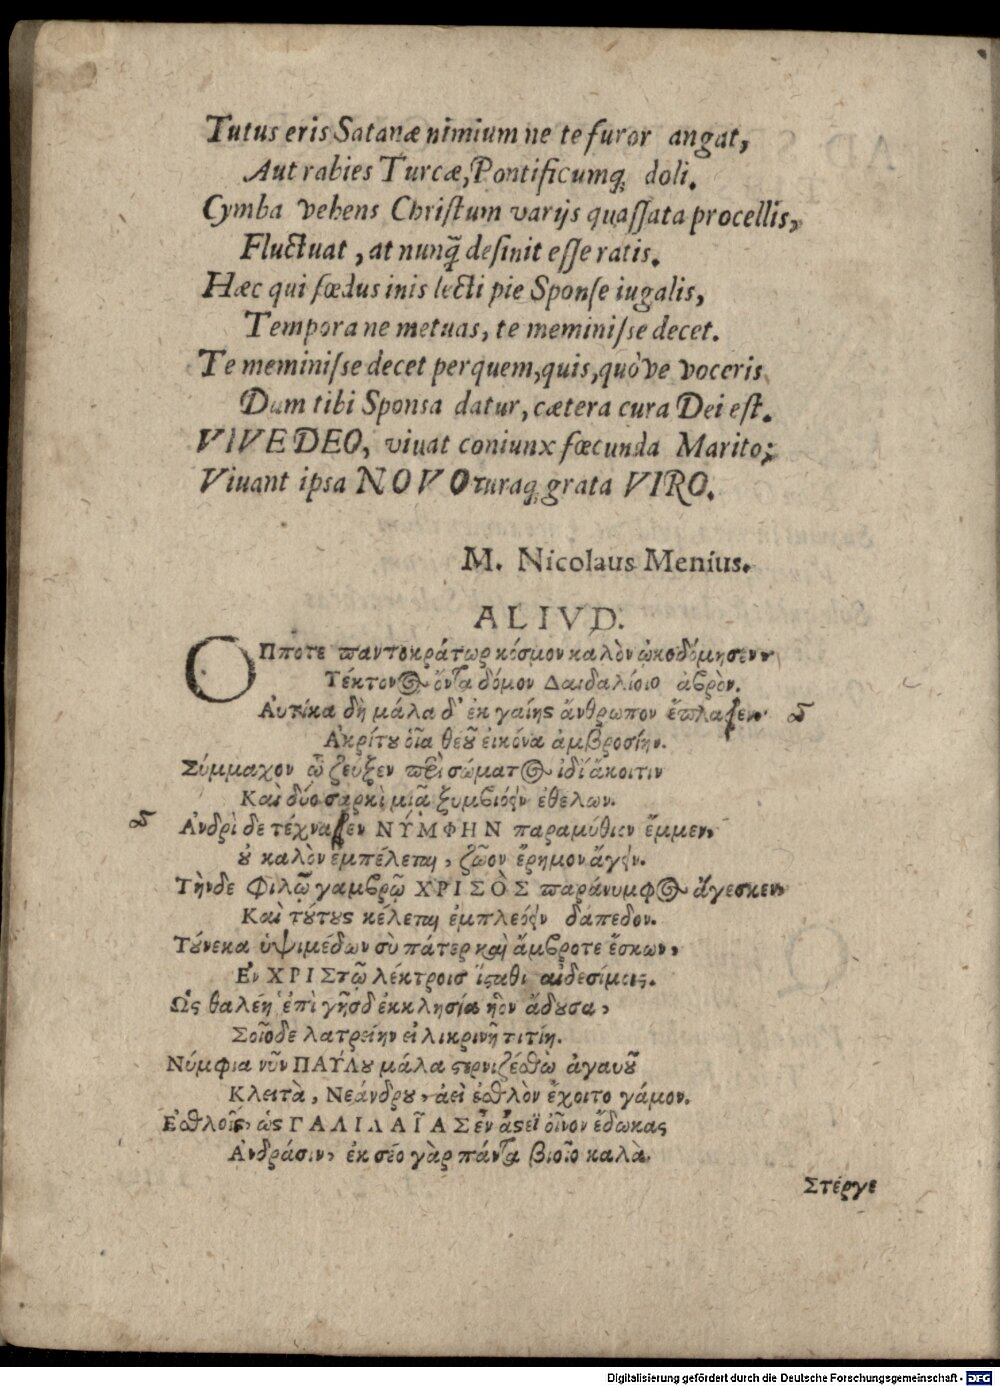 Tutus eris Satanæ nimium ne te furor angat,
Aut rabies Turcæ, Pontificumq́; doli.
Cymba vehens Christum varijs quassata procellis,
Fluctuat, at nunq̃ desinit esse ratis.
Hæc qui fœdus inis lecti pie Sponse iugalis,
Tempora ne metuas, te meminisse decet.
Te meminisse decet per quem, quis, quòve voceris
Dum tibi Sponsa datur, cætera cura Dei est.
VIVE DEO, viuat coniunx fœcunda Marito;
Viuant ipsa NOVO turaq́; grata VIRO.
M. Nicolaus Menius.
ALIVD.
ΟΠπότε παντοκράτωρ κόσμον καλὸν ὠκοδόμησεν,
Τέκτονος ὄντα δόμον Δαιδαλίοιο ἁβρὸν.
Αυτίκα δὴ μάλα δ' ἐκ γαίης ἄνθρωπον ἔπλασεν
Ακρίτου οἷα θεοῦ εἰκόνα ἀμβροσίην.
Σύμμαχον ᾧ ζεῦξεν περὶ σώματος ἰδὶ ἄκοιτιν
Καὶ δύο σαρκὶ μιᾷ ξυμβιόειν ἐθέλων.
Ανδρὶ δε τέχνασεν ΝΥΜΦΗΝ παραμύθιον ἔμμεν,
οὐ καλὸν ἐμπέλεται, ζῶον ἔρημον ἄγειν.
Τὴνδε Φιλῷ γαμβρῷ ΧΡΙΣΟΣ παράνυμφος ἄγεσκεν
Καὶ τούτους κέλεται ἐμπλεόειν δάπεδον.
Τούνεκα ὑψιμέδων σὺ πάτερ καὶ ἄμβροτε ἔσκων,
Εν ΧΡΙΣτῷ λέκτροισ ἵσταθι αἰδεσίμοις.
Ως θαλέῃ ἐπὶ γῆσδ ἐκκλησία ἧον ἄδουσα,
Σοῖοδε λατρείην εἰλικρινῆ τιτίη.
Νύμφια νῦν ΠΑΥΛου μάλα στερνιζέσθω ἀγαυοῦ
Κλειτὰ, Νεάνδρου, ἀεὶ ἐσθλὸν ἔχοιτο γάμον.
Εσθλοῖς, ὡς ΓΑΛΙΛΑΙΑΣ ἐν ἄστεϊ οἶνον ἔδωκας
Ανδράσιν, ἐκ σέο γὰρ πάντα βιοῖο καλὰ.
Στέργε
Digitalisierung gefördert durch die Deutsche Forschungsgemeinschaft - DFG